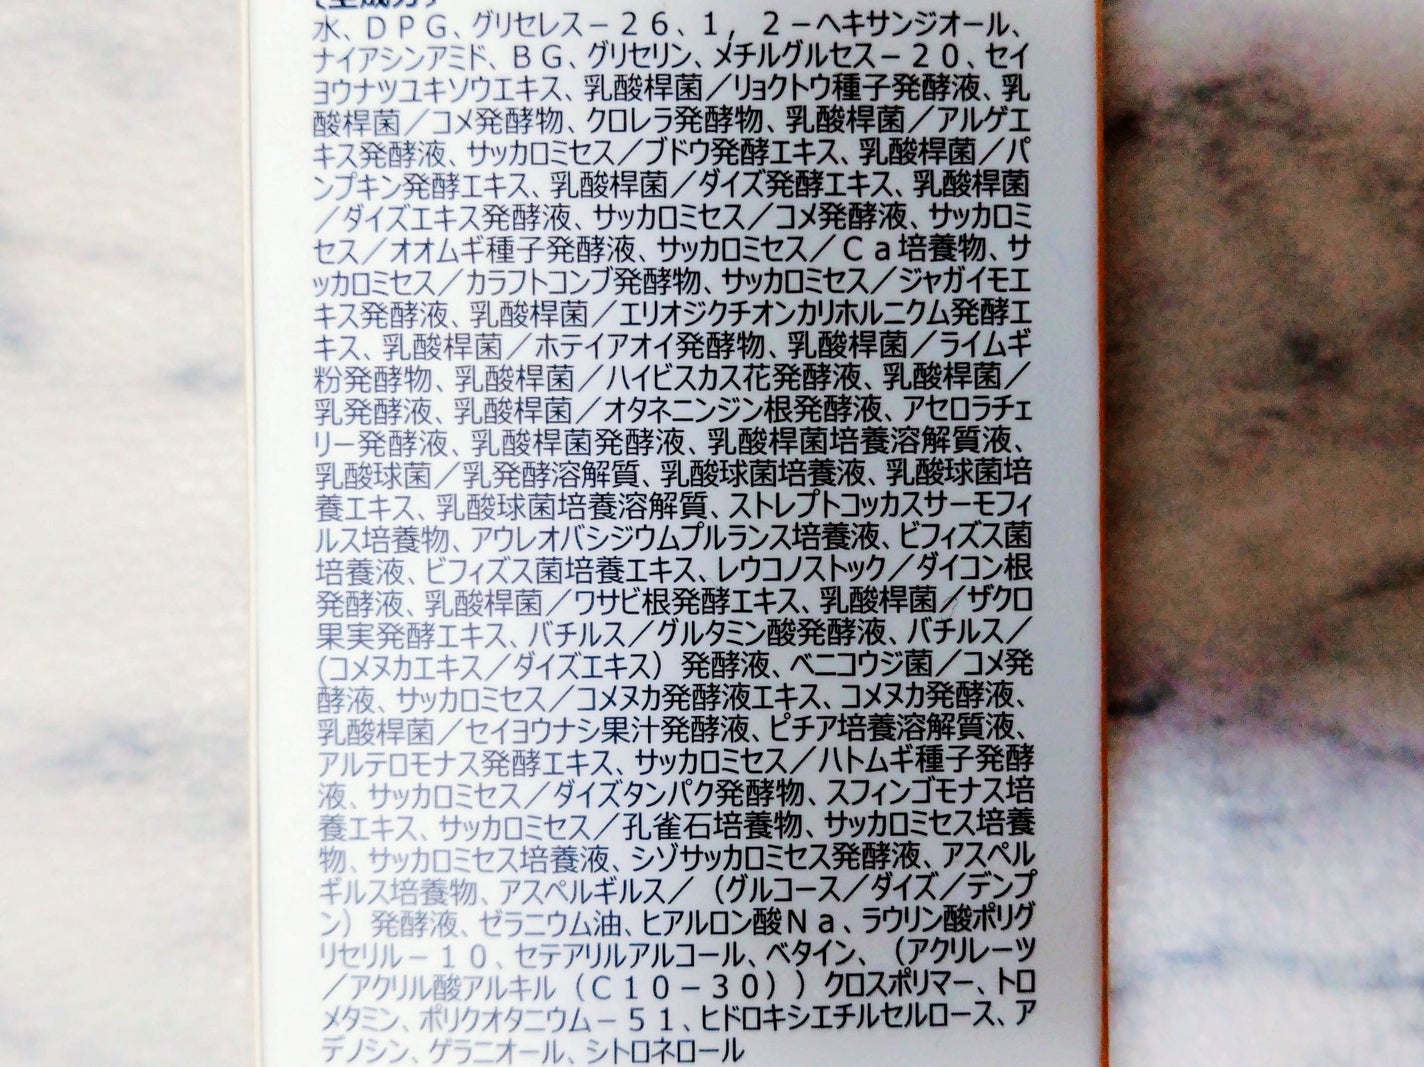 [全成分]
水、ＤＰＧ、グリセレス－２６、１，２－ヘキサンジオール、
ナイアシンアミド、ＢＧ、グリセリン、メチルグルセス－２０、セイ
ヨウナツユキソウエキス、乳酸桿菌／リョクトウ種子発酵液、乳
酸桿菌／コメ発酵物、クロレラ発酵物、乳酸桿菌／アルゲエ
キス発酵液、サッカロミセス／ブドウ発酵エキス、乳酸桿菌／パ
ンプキン発酵エキス、乳酸桿菌／ダイズ発酵エキス、乳酸桿菌
／ダイズエキス発酵液、サッカロミセス／コメ発酵液、サッカロミ
セス／オオムギ種子発酵液、サッカロミセス／Ｃａ培養物、サ
ッカロミセス／カラフトコンブ発酵物、サッカロミセス／ジャガイモエ
キス発酵液、乳酸桿菌／エリオジクチオンカリホルニクム発酵エ
キス、乳酸桿菌／ホテイアオイ発酵物、乳酸桿菌／ライムギ
粉発酵物、乳酸桿菌／ハイビスカス花発酵液、乳酸桿菌／
乳発酵液、乳酸桿菌／オタネニンジン根発酵液、アセロラチェ
リー発酵液、乳酸桿菌発酵液、乳酸桿菌培養溶解質液、
乳酸球菌／乳発酵溶解質、乳酸球菌培養液、乳酸球菌培
養エキス、乳酸球菌培養溶解質、ストレプトコッカスサーモフィ
ルス培養物、アウレオバシジウムプルランス培養液、ビフィズス菌
培養液、ビフィズス菌培養エキス、レウコノストック／ダイコン根
発酵液、乳酸桿菌／ワサビ根発酵エキス、乳酸桿菌／ザクロ
果実発酵エキス、バチルス／グルタミン酸発酵液、バチルス／
(コメヌカエキス／ダイズエキス）発酵液、ベニコウジ菌／コメ発
酵液、サッカロミセス／コメヌカ発酵液エキス、コメヌカ発酵液、
乳酸桿菌／セイヨウナシ果汁発酵液、ピチア培養溶解質液、
アルテロモナス発酵エキス、サッカロミセス／ハトムギ種子発酵
液、サッカロミセス／ダイズタンパク発酵物、スフィンゴモナス培
養エキス、サッカロミセス／孔雀石培養物、サッカロミセス培養
物、サッカロミセス培養液、シゾサッカロミセス発酵液、アスペル
ギルス培養物、アスペルギルス／（グルコース／ダイズ／デンプ
ン）発酵液、ゼラニウム油、ヒアルロン酸Ｎａ、ラウリン酸ポリグ
リセリル－１０、セテアリルアルコール、ベタイン、（アクリレーツ
／アクリル酸アルキル（Ｃ１０－３０））クロスポリマー、トロ
メタミン、ポリクオタニウム－５１、ヒドロキシエチルセルロース、ア
デノシン、ゲラニオール、シトロネロール